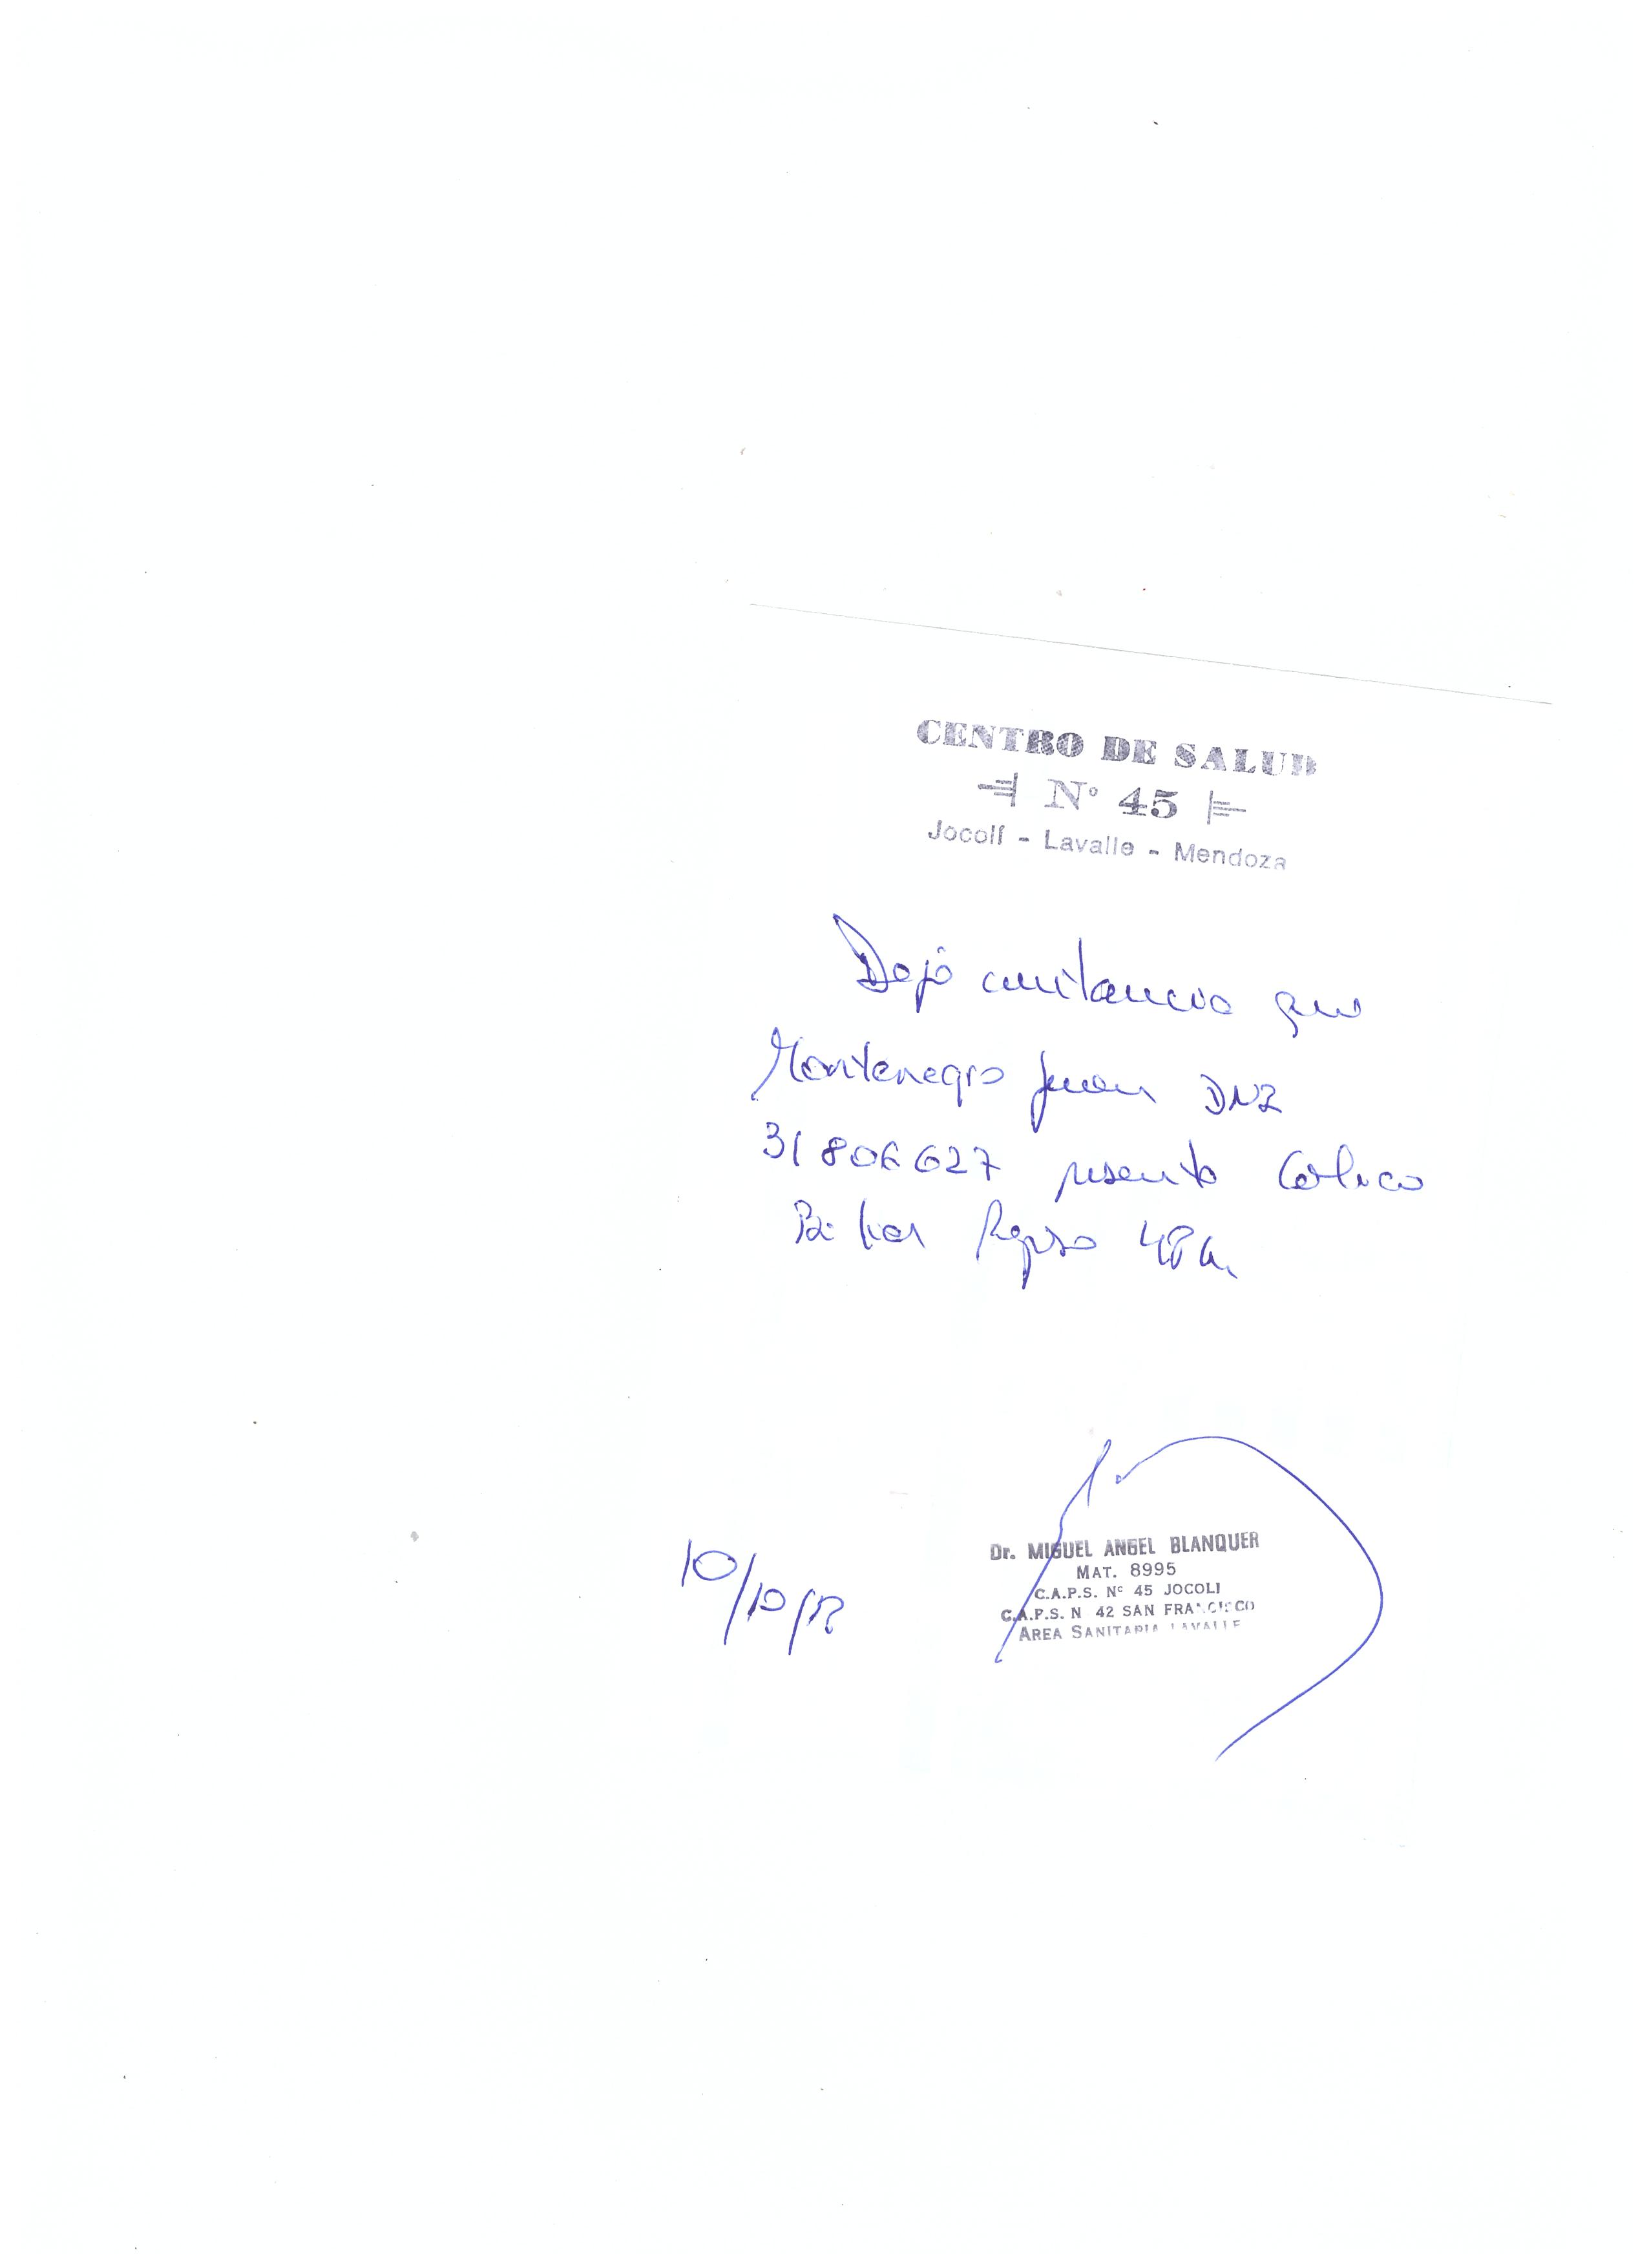 CENTRO DE SALUD
N° 45
Jocolí - Lavalle - Mendoza
Dejo constancia que
Montenegro Juan DNI
31806627 presento Colico
Biliar Reposo 48h.
10/10/
Dr. MIGUEL ANGEL BLANQUER
MAT. 8995
C.A.P.S. N° 45 JOCOLI
C.A.P.S. N 42 SAN FRANCISCO
AREA SANITARIA LAVALLE